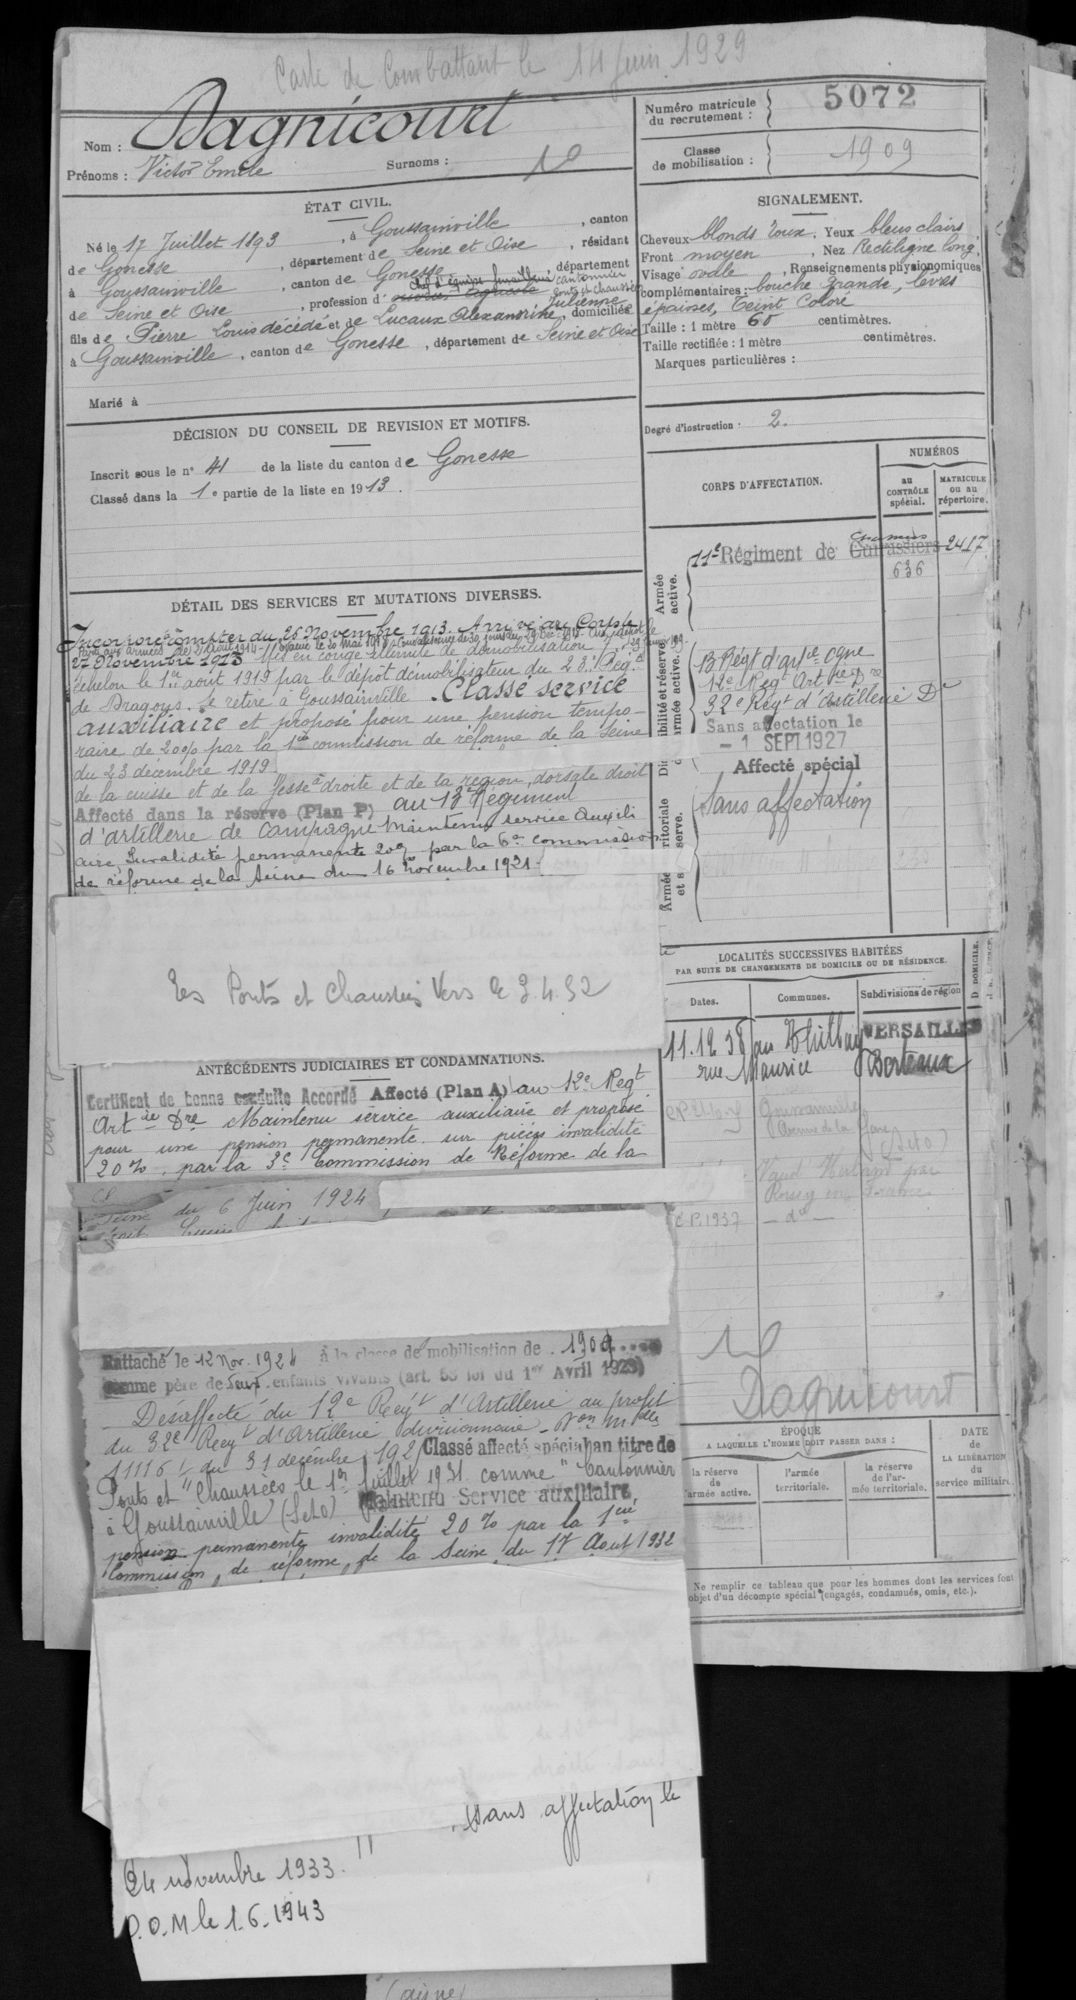 Carte de Combattant le 14 Juin 1929
Nom : Dagnicourt
Prénoms : Victor Emile
Surnoms :
Numéro matricule du recrutement : 5072
Classe de mobilisation : 1909
ÉTAT CIVIL.
Né le 17 Juillet 1893, à Goussainville, canton
de Gonesse, département de Seine et Oise, résidant
à Goussainville, canton de Gonesse, département
de Seine et Oise, profession d' cantonnier
ponts et chaussées
fils de Pierre Louis décédé et de Lucaux Alexandrine Julienne, domiciliés
à Goussainville, canton de Gonesse, département de Seine et Oise
Marié à
SIGNALEMENT.
Cheveux blonds roux. Yeux bleus clairs
Front moyen, Nez Rectiligne long,
Visage ovale, Renseignements physionomiques
complémentaires : bouche grande, lèvres
épaisses, Teint Coloré
Taille : 1 mètre 60 centimètres.
Taille rectifiée : 1 mètre centimètres.
Marques particulières :
Degré d'instruction : 2.
DÉCISION DU CONSEIL DE REVISION ET MOTIFS.
Inscrit sous le n° 41 de la liste du canton de Gonesse
Classé dans la 1e partie de la liste en 1913.
CORPS D'AFFECTATION.
NUMÉROS
au CONTRÔLE spécial.
MATRICULE ou au répertoire.
Armée active.
11e Régiment de Cuirassiers 2417
636
13 Régt d'arie cgne
12e Régt Artie Dre
32e Régt d'Artillerie Dre
Sans affectation le
- 1 SEPT 1927
Affecté spécial
Sans affectation
DÉTAIL DES SERVICES ET MUTATIONS DIVERSES.
Incorporé à compter du 26 Novembre 1913. Arrivé au Corps le
27 Novembre 1913 Mis en congé illimité de démobilisation
échelon le 1er août 1919 par le dépôt démobilisateur du 23e Régt
de Dragons. Se retire à Goussainville. Classé service
auxiliaire et proposé pour une pension tempo-
raire de 20% par la 1ère commission de réforme de la Seine
du 23 décembre 1919
de la cuisse et de la fesse droite et de la région dorsale droit
Affecté dans la réserve (Plan P) au 13e Régiment
d'artillerie de campagne Maintenu service auxili
aire Invalidité permanente 20% par la 6e commission
de réforme de la Seine du 16 novembre 1921.
Les Ponts et Chaussées Vers le 3.4.32
ANTÉCÉDENTS JUDICIAIRES ET CONDAMNATIONS.
Certificat de bonne conduite Accordé Affecté (Plan A) au 12e Régt
Artie Dre Maintenu service auxiliaire et proposé
pour une pension permanente sur pièces invalidité
20%, par la 3e Commission de Réforme de la
Seine du 6 Juin 1924
LOCALITÉS SUCCESSIVES HABITÉES
PAR SUITE DE CHANGEMENTS DE DOMICILE OU DE RÉSIDENCE.
Dates.
Communes.
Subdivisions de région
D. DOMICILE.
11.12.38 au Thillay VERSAILLES
rue Maurice Berteaux
Goussainville
Avenue de la Gare
(S et O)
Roissy en France
C.P. 1937 — do —
Rattaché le 12 Nov. 1924 à la classe de mobilisation de 1909
comme père de deux enfants vivants (art. 58 loi du 1er Avril 1923)
Désaffecté du 12e Régt d'Artillerie au profit
du 32e Régt d'Artillerie divisionnaire
du 31 décembre 192 Classé affecté spécial au titre de
Ponts et Chaussées le 1er Juillet 1931 comme "Cantonnier
à Goussainville (S et O) Maintenu Service auxiliaire
pension permanente invalidité 20% par la 1ère
Commission de réforme de la Seine du 17 Aout 1932
Dagnicourt
ÉPOQUE
A LAQUELLE L'HOMME DOIT PASSER DANS :
DATE
DE
LA LIBÉRATION
DU
service militaire.
la réserve de l'armée active.
l'armée territoriale.
la réserve de l'armée territoriale.
Ne remplir ce tableau que pour les hommes dont les services font
objet d'un décompte spécial (engagés, condamnés, omis, etc.).
Sans affectation le
24 novembre 1933.
D.O.M le 1.6.1943
(aisne)